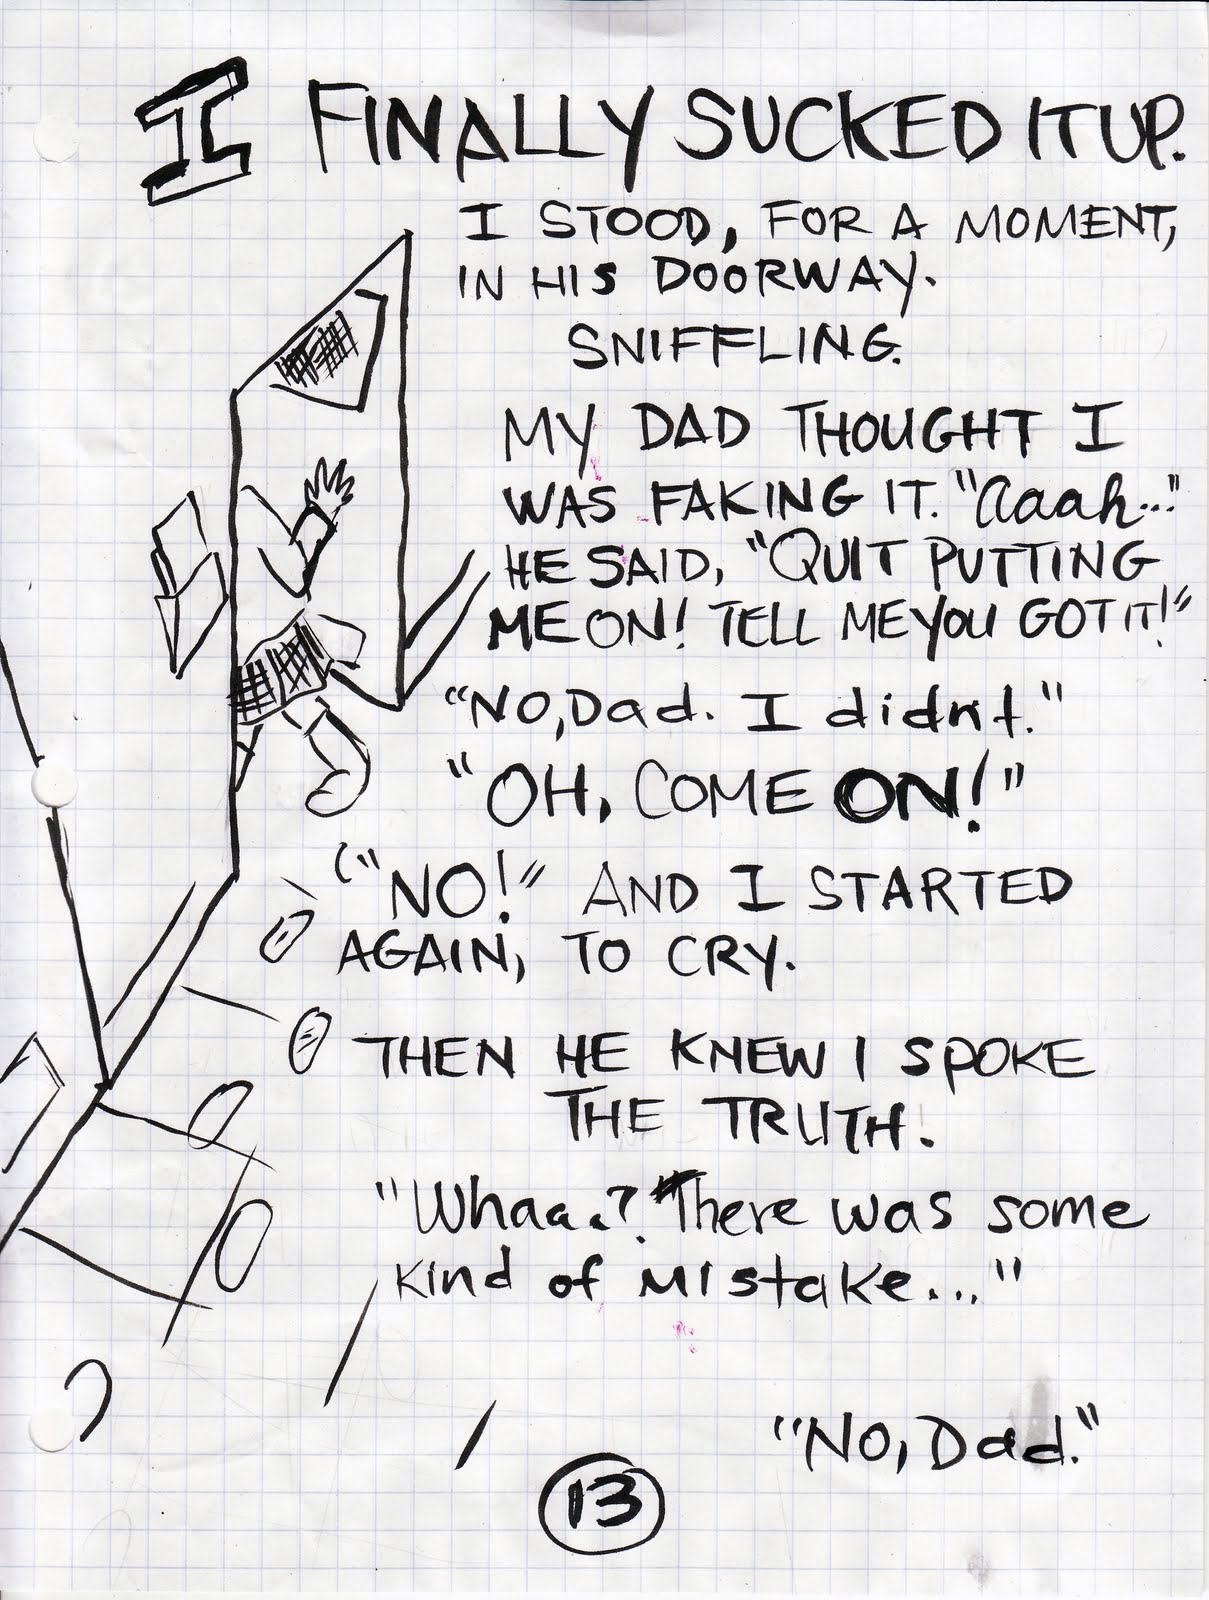 I FINALLY SUCKED IT UP.
I STOOD, FOR A MOMENT,
IN HIS DOORWAY.
SNIFFLING.
MY DAD THOUGHT I
WAS FAKING IT. "Aaah..."
HE SAID, "QUIT PUTTING
ME ON! TELL ME YOU GOT IT!"
"NO, Dad. I didnt."
"OH, COME ON!"
("NO!" AND I STARTED
AGAIN, TO CRY.
THEN HE KNEW I SPOKE
THE TRUTH.
"Whaaa? There was some
kind of mistake..."
"No, Dad."
13